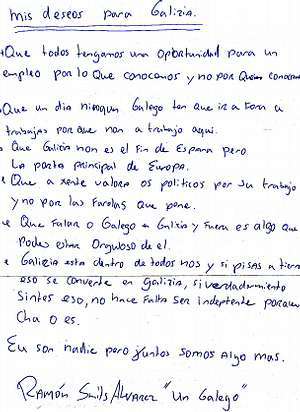 mis deseos para Galizia.
• Que todos tengamos una oportunidad para un
empleo por lo Que conocamos y no por Quien conocamos
• Que un dia ningun Galego ten que ir a fora a
trabajar por que non a trabajo aqui.
• Que Galizia non es el Fin de España pero
La porta principal de Europa.
• Que a xente valora os politicos por su trabajo
y no por las Farolas que pone.
• Que Falar o Galego en Galizia y Fuera es algo que
Podes estar Orgulloso de el.
• Galizia esta dentro de todos nos y si pisas a tierra
eso se converte en Galizia, si verdadamiento
Sintes eso, no hace Falta ser indeptente
o es.
Eu son nadie pero juntos somos Algo mas.
RAMÓN Álvarez "un Galego"